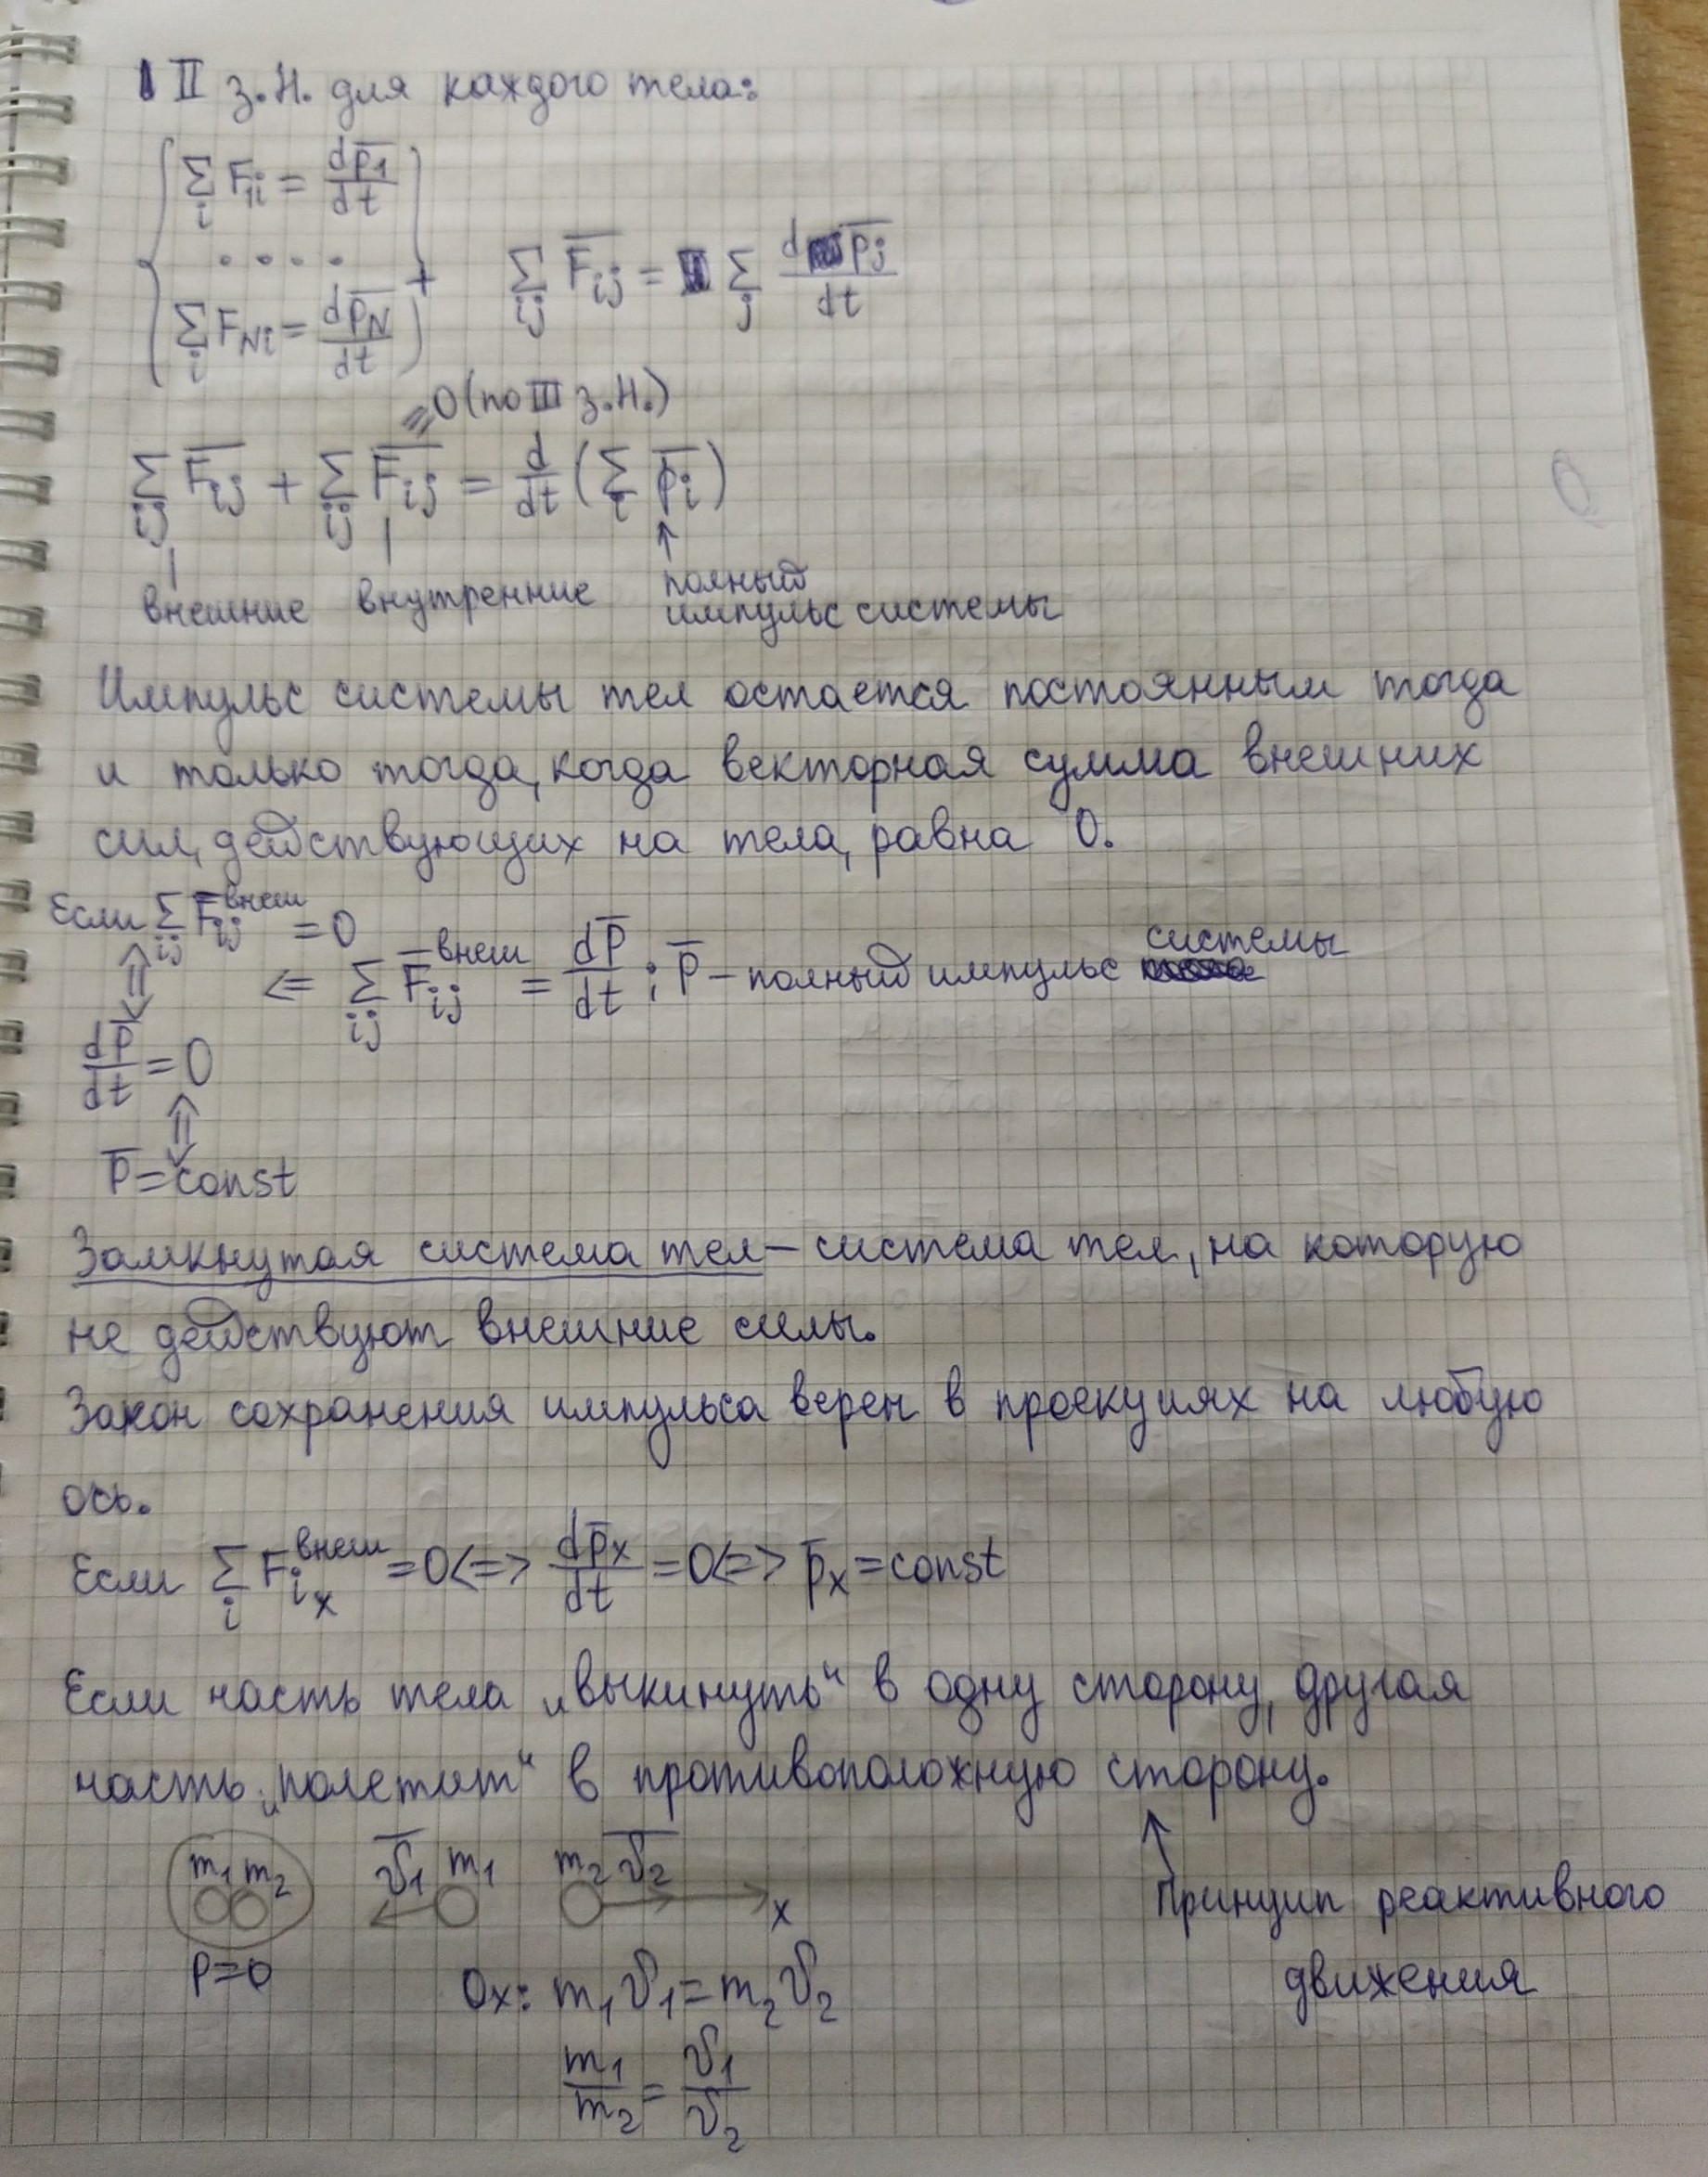 II з.Н. для каждого тела:
{ Σ_i F_1i = dp̅₁/dt
. . . .
Σ_i F_Ni = dp̅_N/dt } +
Σ_ij F̅_ij = Σ_j dp̅_j/dt
=0 (по III з.Н.)
Σ_ij F̅_ij + Σ_ij F̅_ij = d/dt (Σ_i p̅_i)
внешние внутренние полный
импульс системы
Импульс системы тел остается постоянным тогда
и только тогда, когда векторная сумма внешних
сил, действующих на тела, равна 0.
Если Σ_ij F̅_ij^внеш = 0
⇕
<= Σ_ij F̅_ij^внеш = dp̅/dt ; p̅ – полный импульс системы
dp̅/dt = 0
⇕
p̅ = const
Замкнутая система тел – система тел, на которую
не действуют внешние силы.
Закон сохранения импульса верен в проекциях на любую
ось.
Если Σ_i F_ix^внеш = 0 <=> dp̅x/dt = 0 <=> p̅x = const
Если часть тела „выкинуть“ в одну сторону, другая
часть „полетит“ в противоположную сторону.
↑
Принцип реактивного
движения
m₁ m₂
v̅₁ m₁ m₂ v̅₂
x
p=0
Ox: m₁v₁ = m₂v₂
m₁/m₂ = v₁/v₂